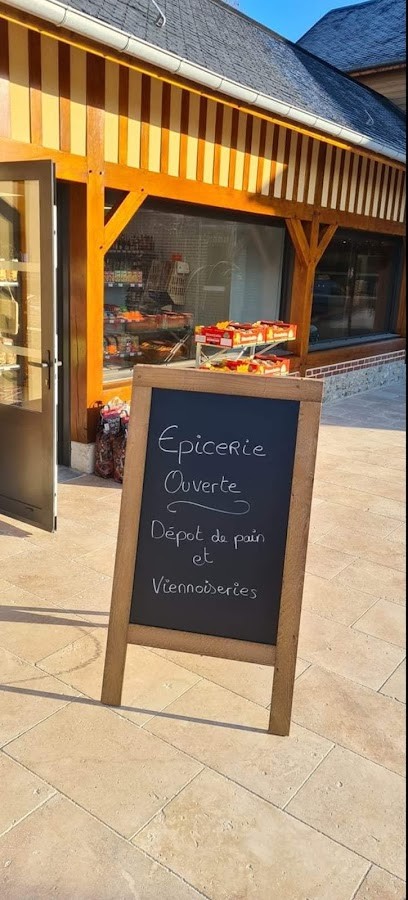 Epicerie
Ouverte
Dépot de pain
et
Viennoiseries